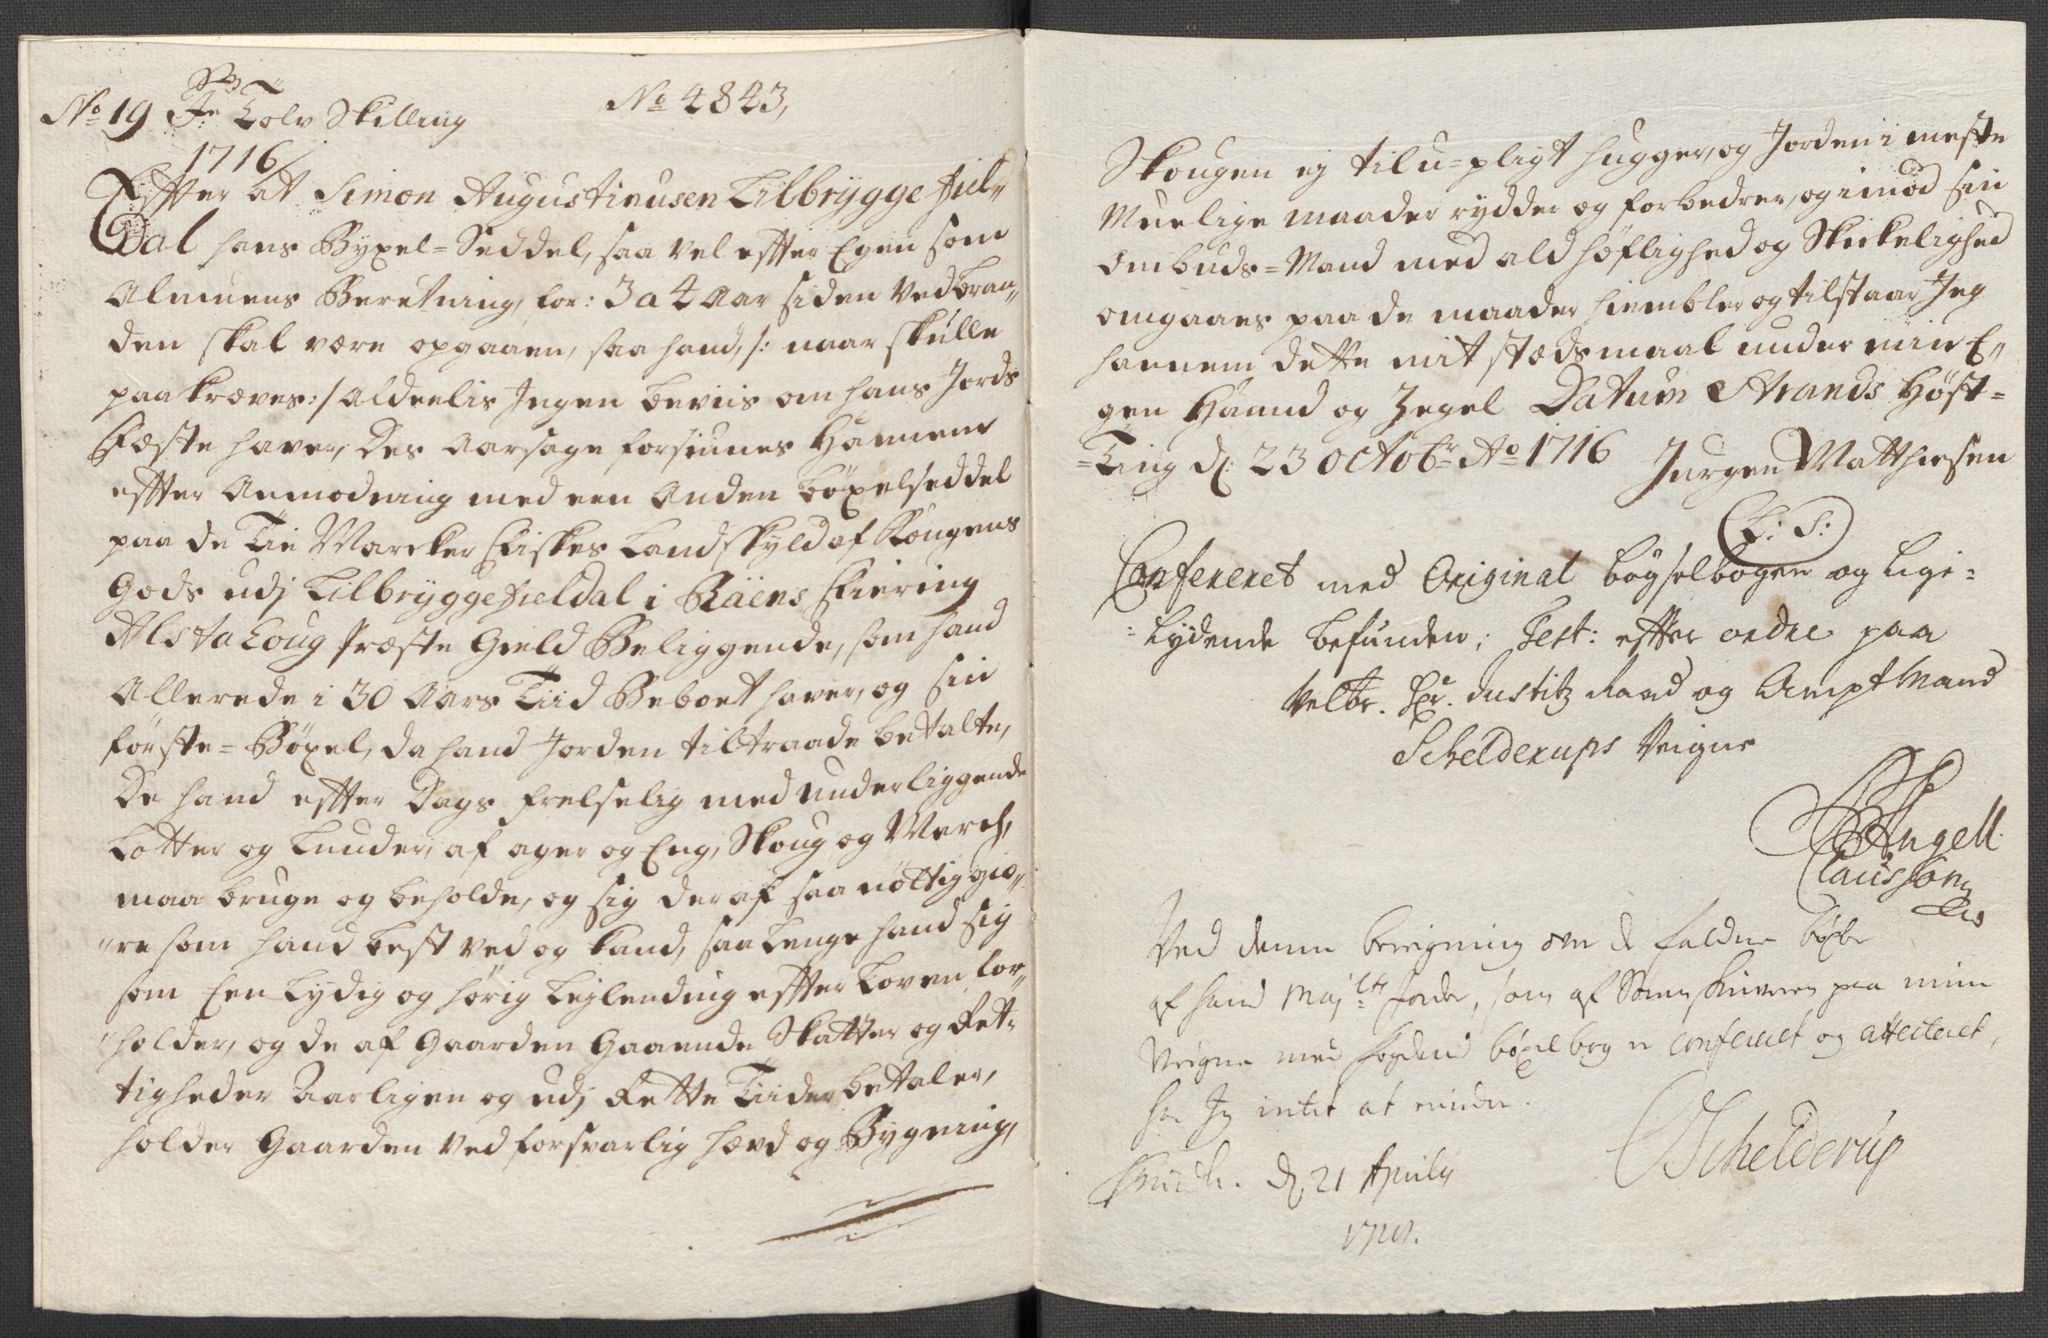 No 19 Tolv Skilling
No 4843,
1716/
Effter at Simon Augustinusen Tilbrygge fiel-
dal hans Byxel=Seddel, saa vel effter Egen som
Almuens Beretning, for: 3 a 4 Aar siden Ved bran-
den skal være opgaaen, saa hand, /: naar skulle
paa kræves :/ Aldeelis Ingen beviis om hans Jords
Fæste haver, Des Aarsage forsiunes Hannem
effter Anmodning med een Anden böxelseddel
paa de Tie Marcker Fiskes Landskyld af Kongens
Gods udj Tilbryggefieldal i Räens Fiering
Alstaboug Præste Gield Beliggende, som hand
Allerede i 30 Aars Tiid Beboet haver, og sin
første=Böxel, da hand Jorden tiltraade betalte,
De hand effter Dags frelselig med underliggende
Lotter og Lunder, af ager og Eng, Skoug og March,
maa bruge og beholde, og sig deraf saa nöttig giö-
re som hand best ved og kand, saa lenge hand sig
som Een Lydig og hörig Lejlending effter Loven for-
holder, og de af Gaarden Gaaende Skatter og Ret-
tigheder Aarligen og udj Rette Tiider betaler,
holder Gaarden ved forsvarlig hævd og Bygning,
Skougen ej til u=pligt hugger, og Jorden i meste
Muelige maader rydder og forbedrer, og imod sin
Ombuds=Mand med ald höflighed og Skikelighed
omgaaes paa de maader hiembler og tilstaar Jeg
hannem dette mit stædsmaal under min E-
gen Haand og Zegel Datum Strands Höst=
=Ting d: 23 Octobr Ao 1716 Jurgen Matthiesen
L: S:
Confereret med Original bögselbogen og lige=
=lydende befunden; Test: effter ordre paa
Velbr. Hr. Justitz Raad og Amptmand
Schelderups Veigne
Angell
Claussøn
Ved denne beregning om de faldne böxler
af hans Majts Jorder, som af Sorenskriveren paa mine
Veigne med fogdens böxelbog er Confereret og attesteret,
har Jeg intet at erindre.
d 21 Aprily
Schelderup